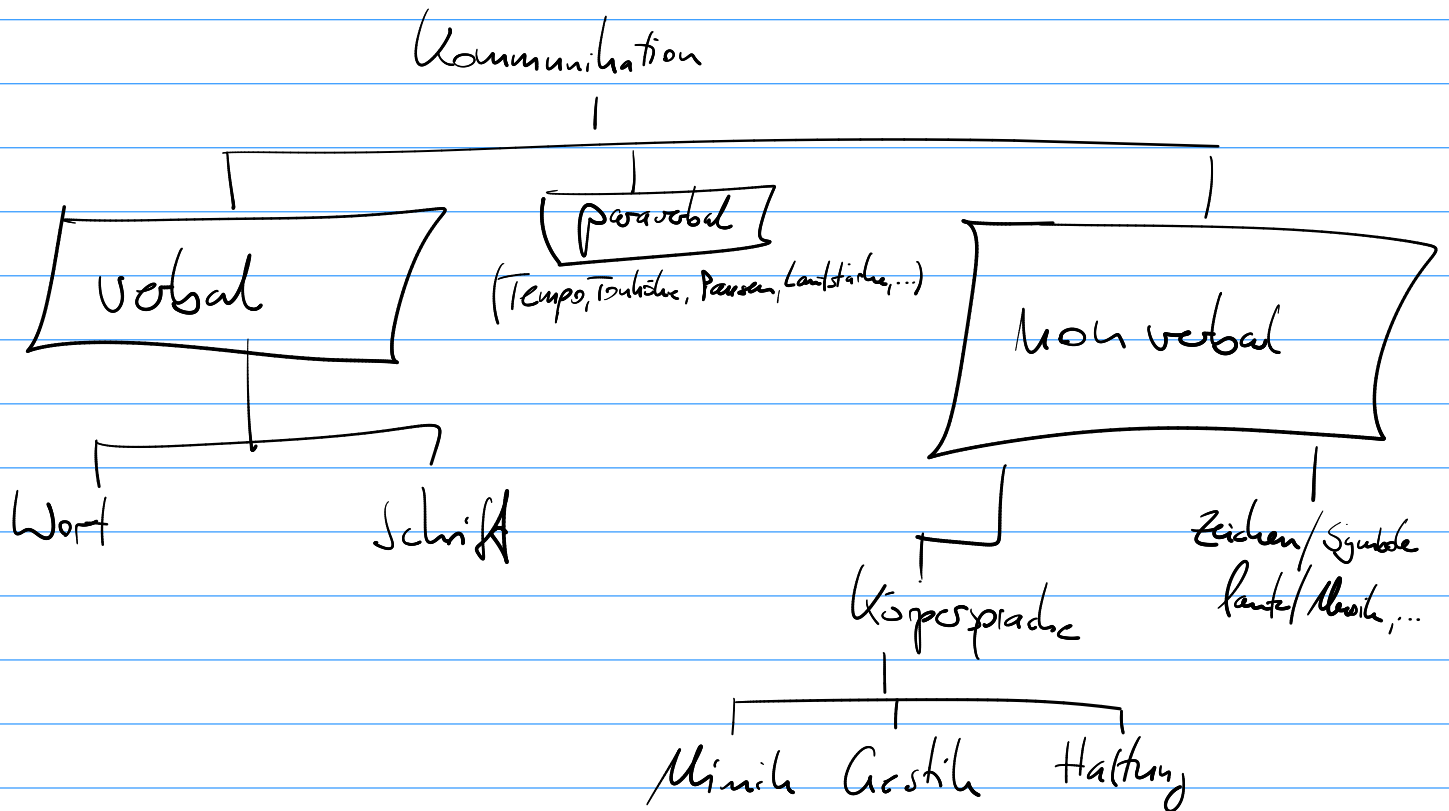 Kommunikation
verbal
paraverbal
(Tempo, Tonhöhe, Pausen, Lautstärke,...)
non verbal
Wort
Schrift
Körpersprache
Zeichen/Symbole
Laute/Musik,...
Mimik Gestik Haltung